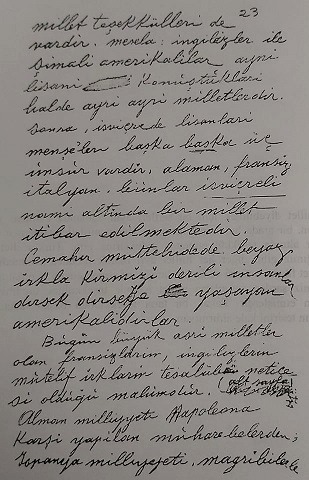 23
millet teşekkülleri de
vardır. mesela: ingilizler ile
Şimali amerikalılar ayni
lisani konuştukları
halde ayri ayri milletlerdir.
sonra, isviçrede lisanlari
menşeleri başka başka üç
ünsür vardir, alaman, fransiz
italyan. bunlar isviçreli
nami altinda bir millet
itibar edilmektedir.
Cemahir müttehidede beyaz
irkla kirmizi derili insanlar
dirsek dirseğe yaşayan
amerikalidirlar.
Bugün büyük asri milletler
olan fransizlarin, ingilizlerin
mütelif irkların tesalübü netice
si olduğu malûmdur. (alt sayfa
Alman milliyyeti Napoleona
Karşi yapilan muharebelerden;
İspanya milliyyeti, magribilerle